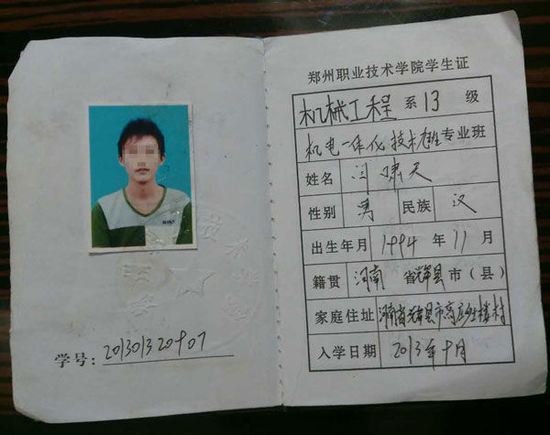 学号: 201301320907
郑州职业技术学院学生证
机械工程 系 13 级
机电一体化技术 专业班
姓名 闫啸天
性别 男 民族 汉
出生年月 1994 年 11 月
籍贯 河南 省辉县市(县)
家庭住址 河南省辉县市高庄乡 楼村
入学日期 2013年9月